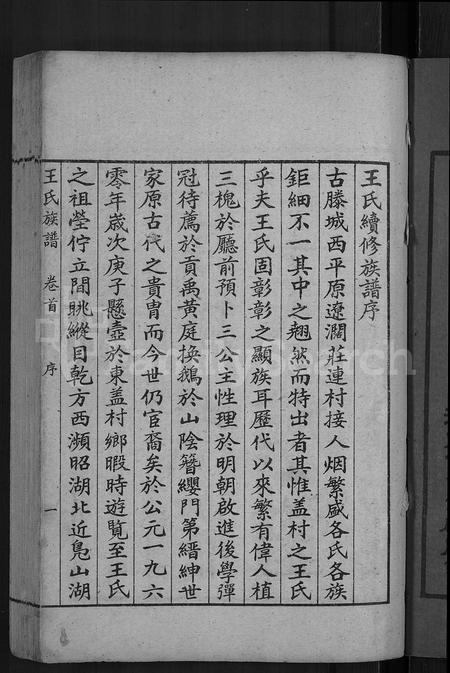 王氏續修族譜序
古滕城西平原遼濶莊連村接人烟繁盛各氏各族
鉅細不一其中之翹然而特出者其惟盖村之王氏
乎夫王氏固彰彰之顯族耳歷代以來繁有偉人植
三槐於廳前預卜三公主性理於明朝啟進後學彈
冠待薦於貢禹黃庭換鵝於山陰簪纓門第縉紳世
家原古代之貴胄而今世仍官裔矣於公元一九六
零年歲次庚子懸壺於東盖村鄉暇時遊覽至王氏
之祖塋佇立閒眺縱目乾方西瀕昭湖北近鳬山湖
王氏族譜 卷首 序 一